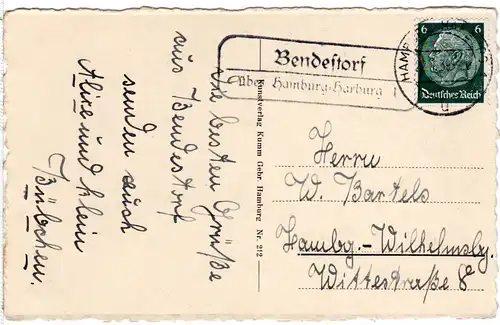 Die besten Grüße
aus Bendestorf
senden auch
Alice und klein
Bübchen.
Kunstverlag Kumm Gebr. Hamburg Nr. 212
Bendestorf
über Hamburg-Harburg 1
HAMB
6 6
Deutsches Reich
Herrn
W. Bartels
Hambg.-Wilhelmsbg.
Wittestraße 8